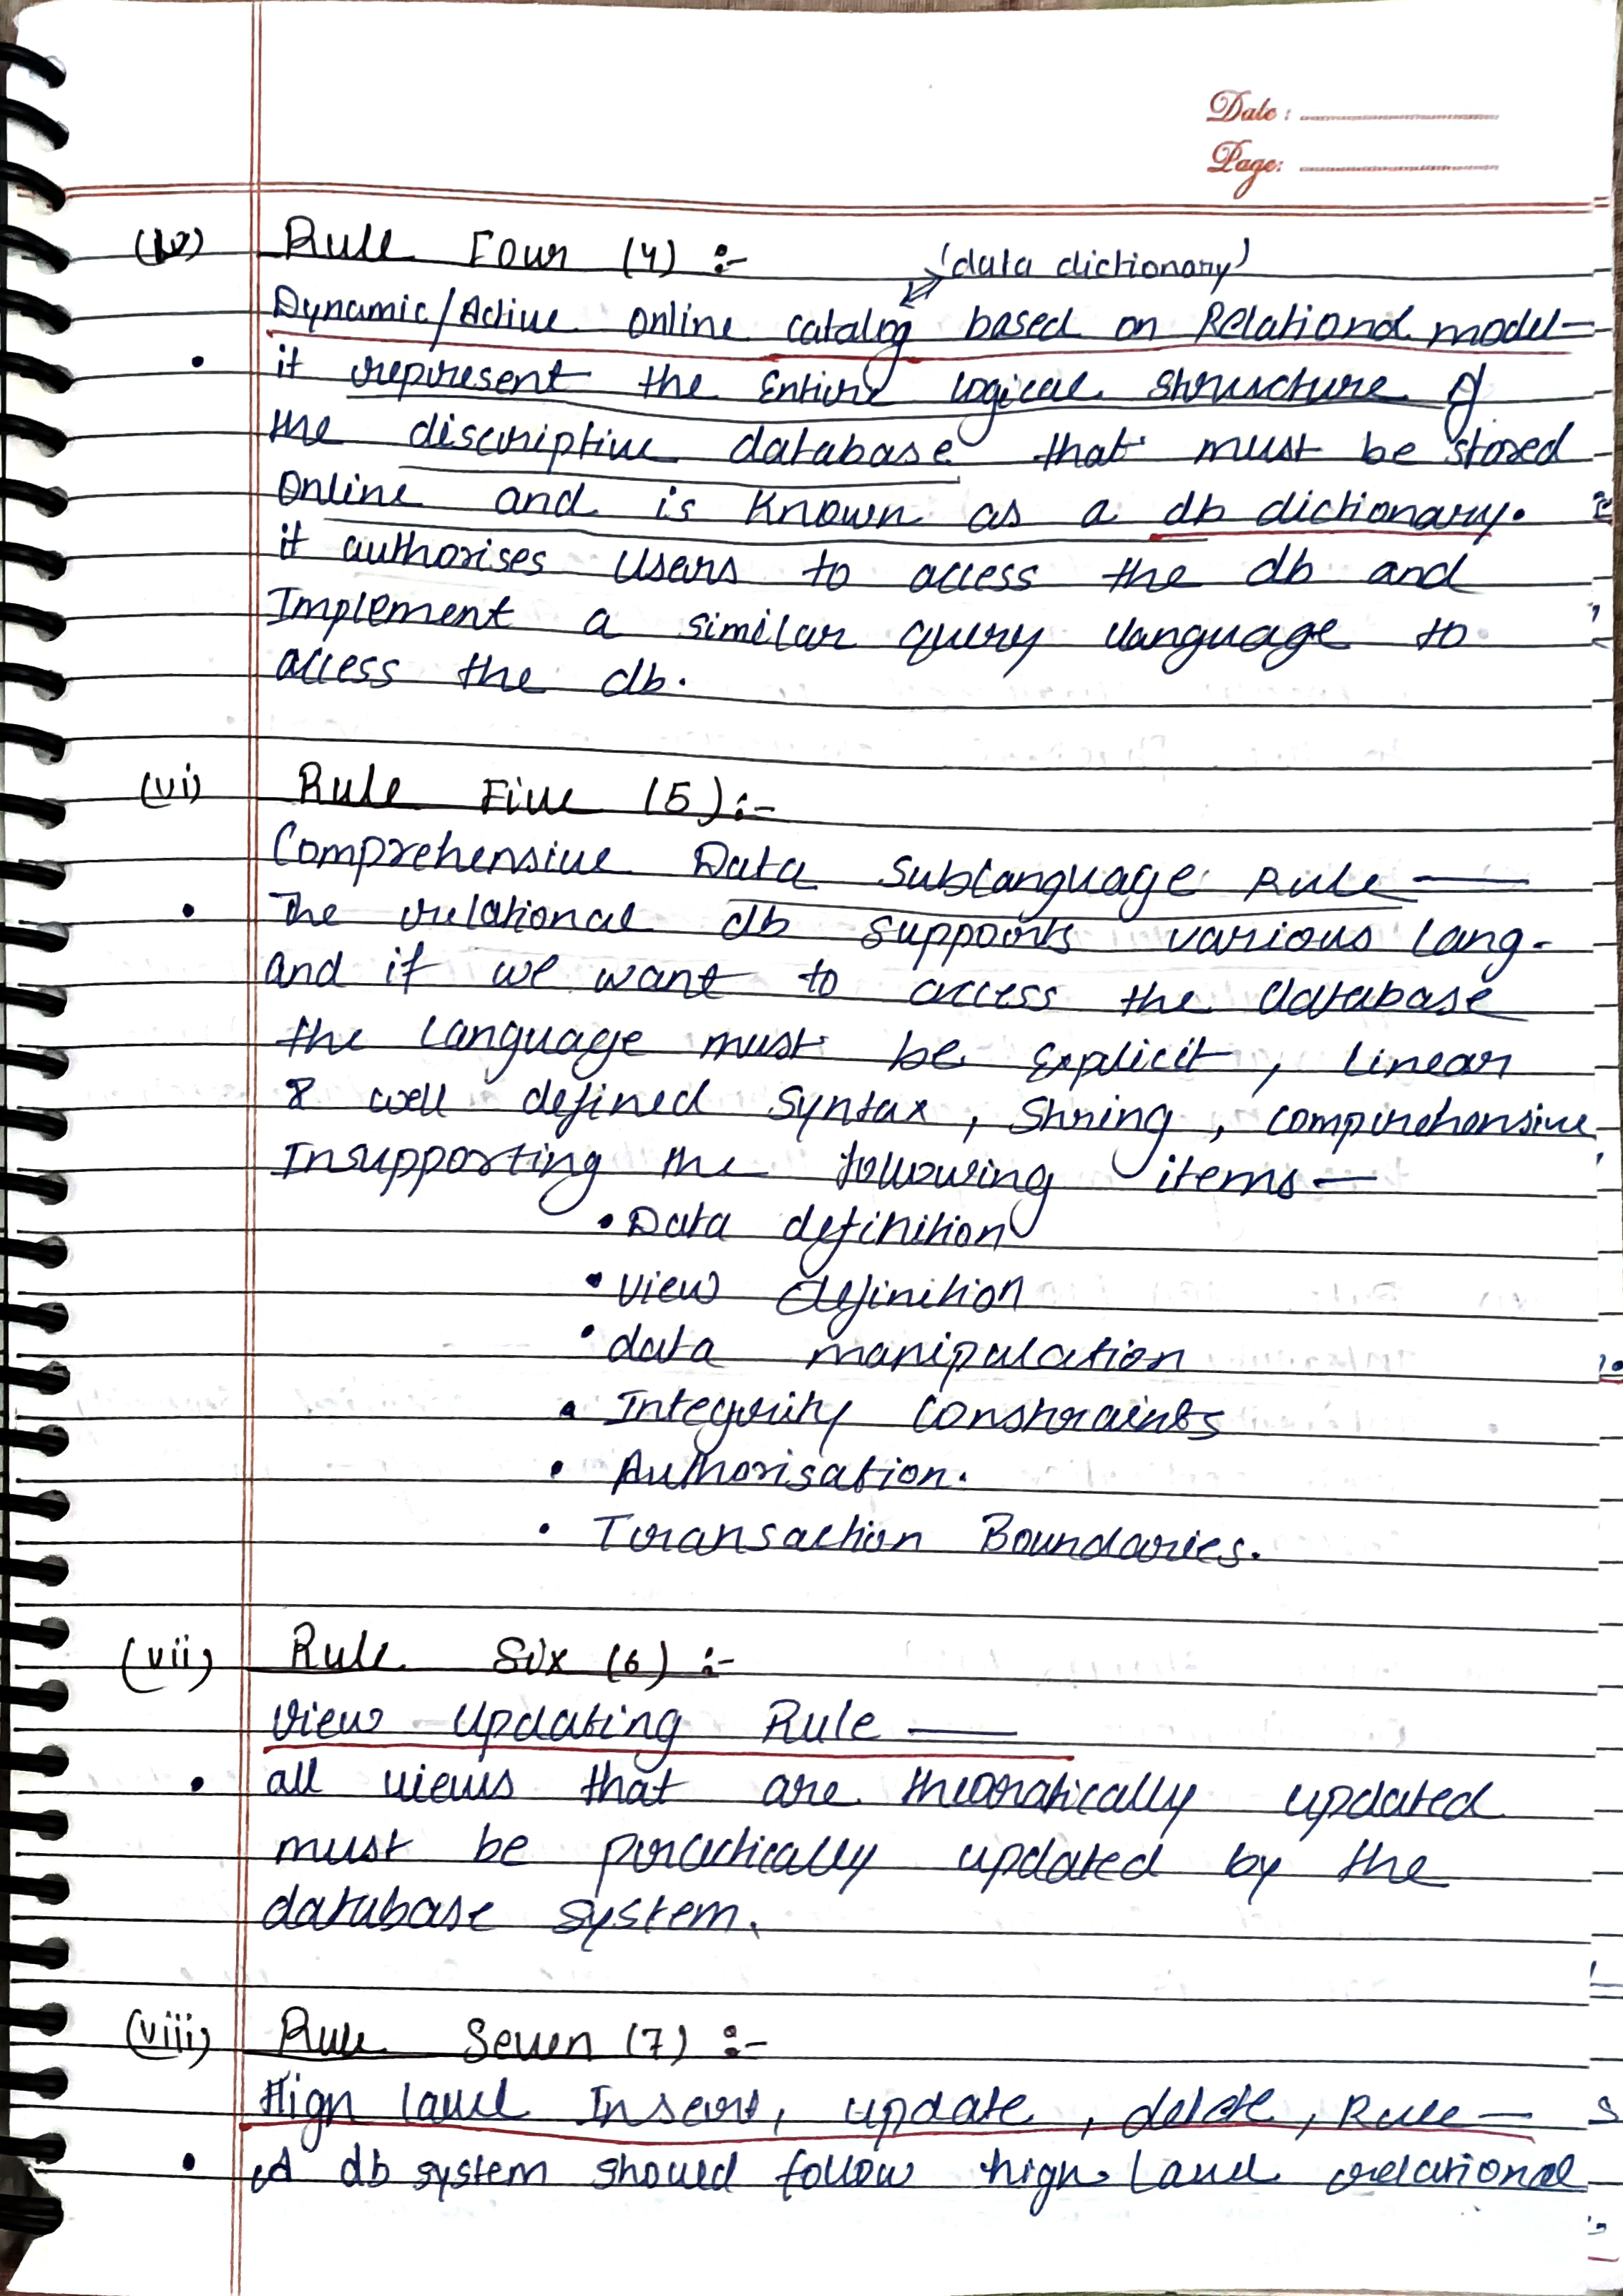 Date :
Page:
(iv) Rule Four (4) :-
(data dictionary)
Dynamic/Active online catalog based on Relational model—
• it represent the Entire logical structure of
the discriptive database that must be stored
Online and is Known as a db dictionary.
it authorises Users to access the db and
Implement a similar query language to
access the db.
(vi) Rule Five (5) :-
Comprehensive Data Sublanguage Rule —
• The relational db supports various lang.
and if we want to access the database
the language must be Explicit, linear
& well defined syntax, String, comprehensive
Insupporting the following items—
• Data definition
• View definition
• data manipulation
• Integrity Constraints
• Authorisation.
• Transaction Boundaries.
(vii) Rule Six (6) :-
View Updating Rule —
• all views that are theoratically updated
must be practically updated by the
database system.
(viii) Rule Seven (7) :-
High level Insert, update, delete, Rule—
• A db system should follow high level relational